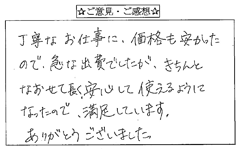 ☆ご意見・ご感想☆
丁寧なお仕事に、価格も安かった
ので、急な出費でしたが、きちんと
なおせて長く安心して使えるように
なったので、満足しています。
ありがとうございました。